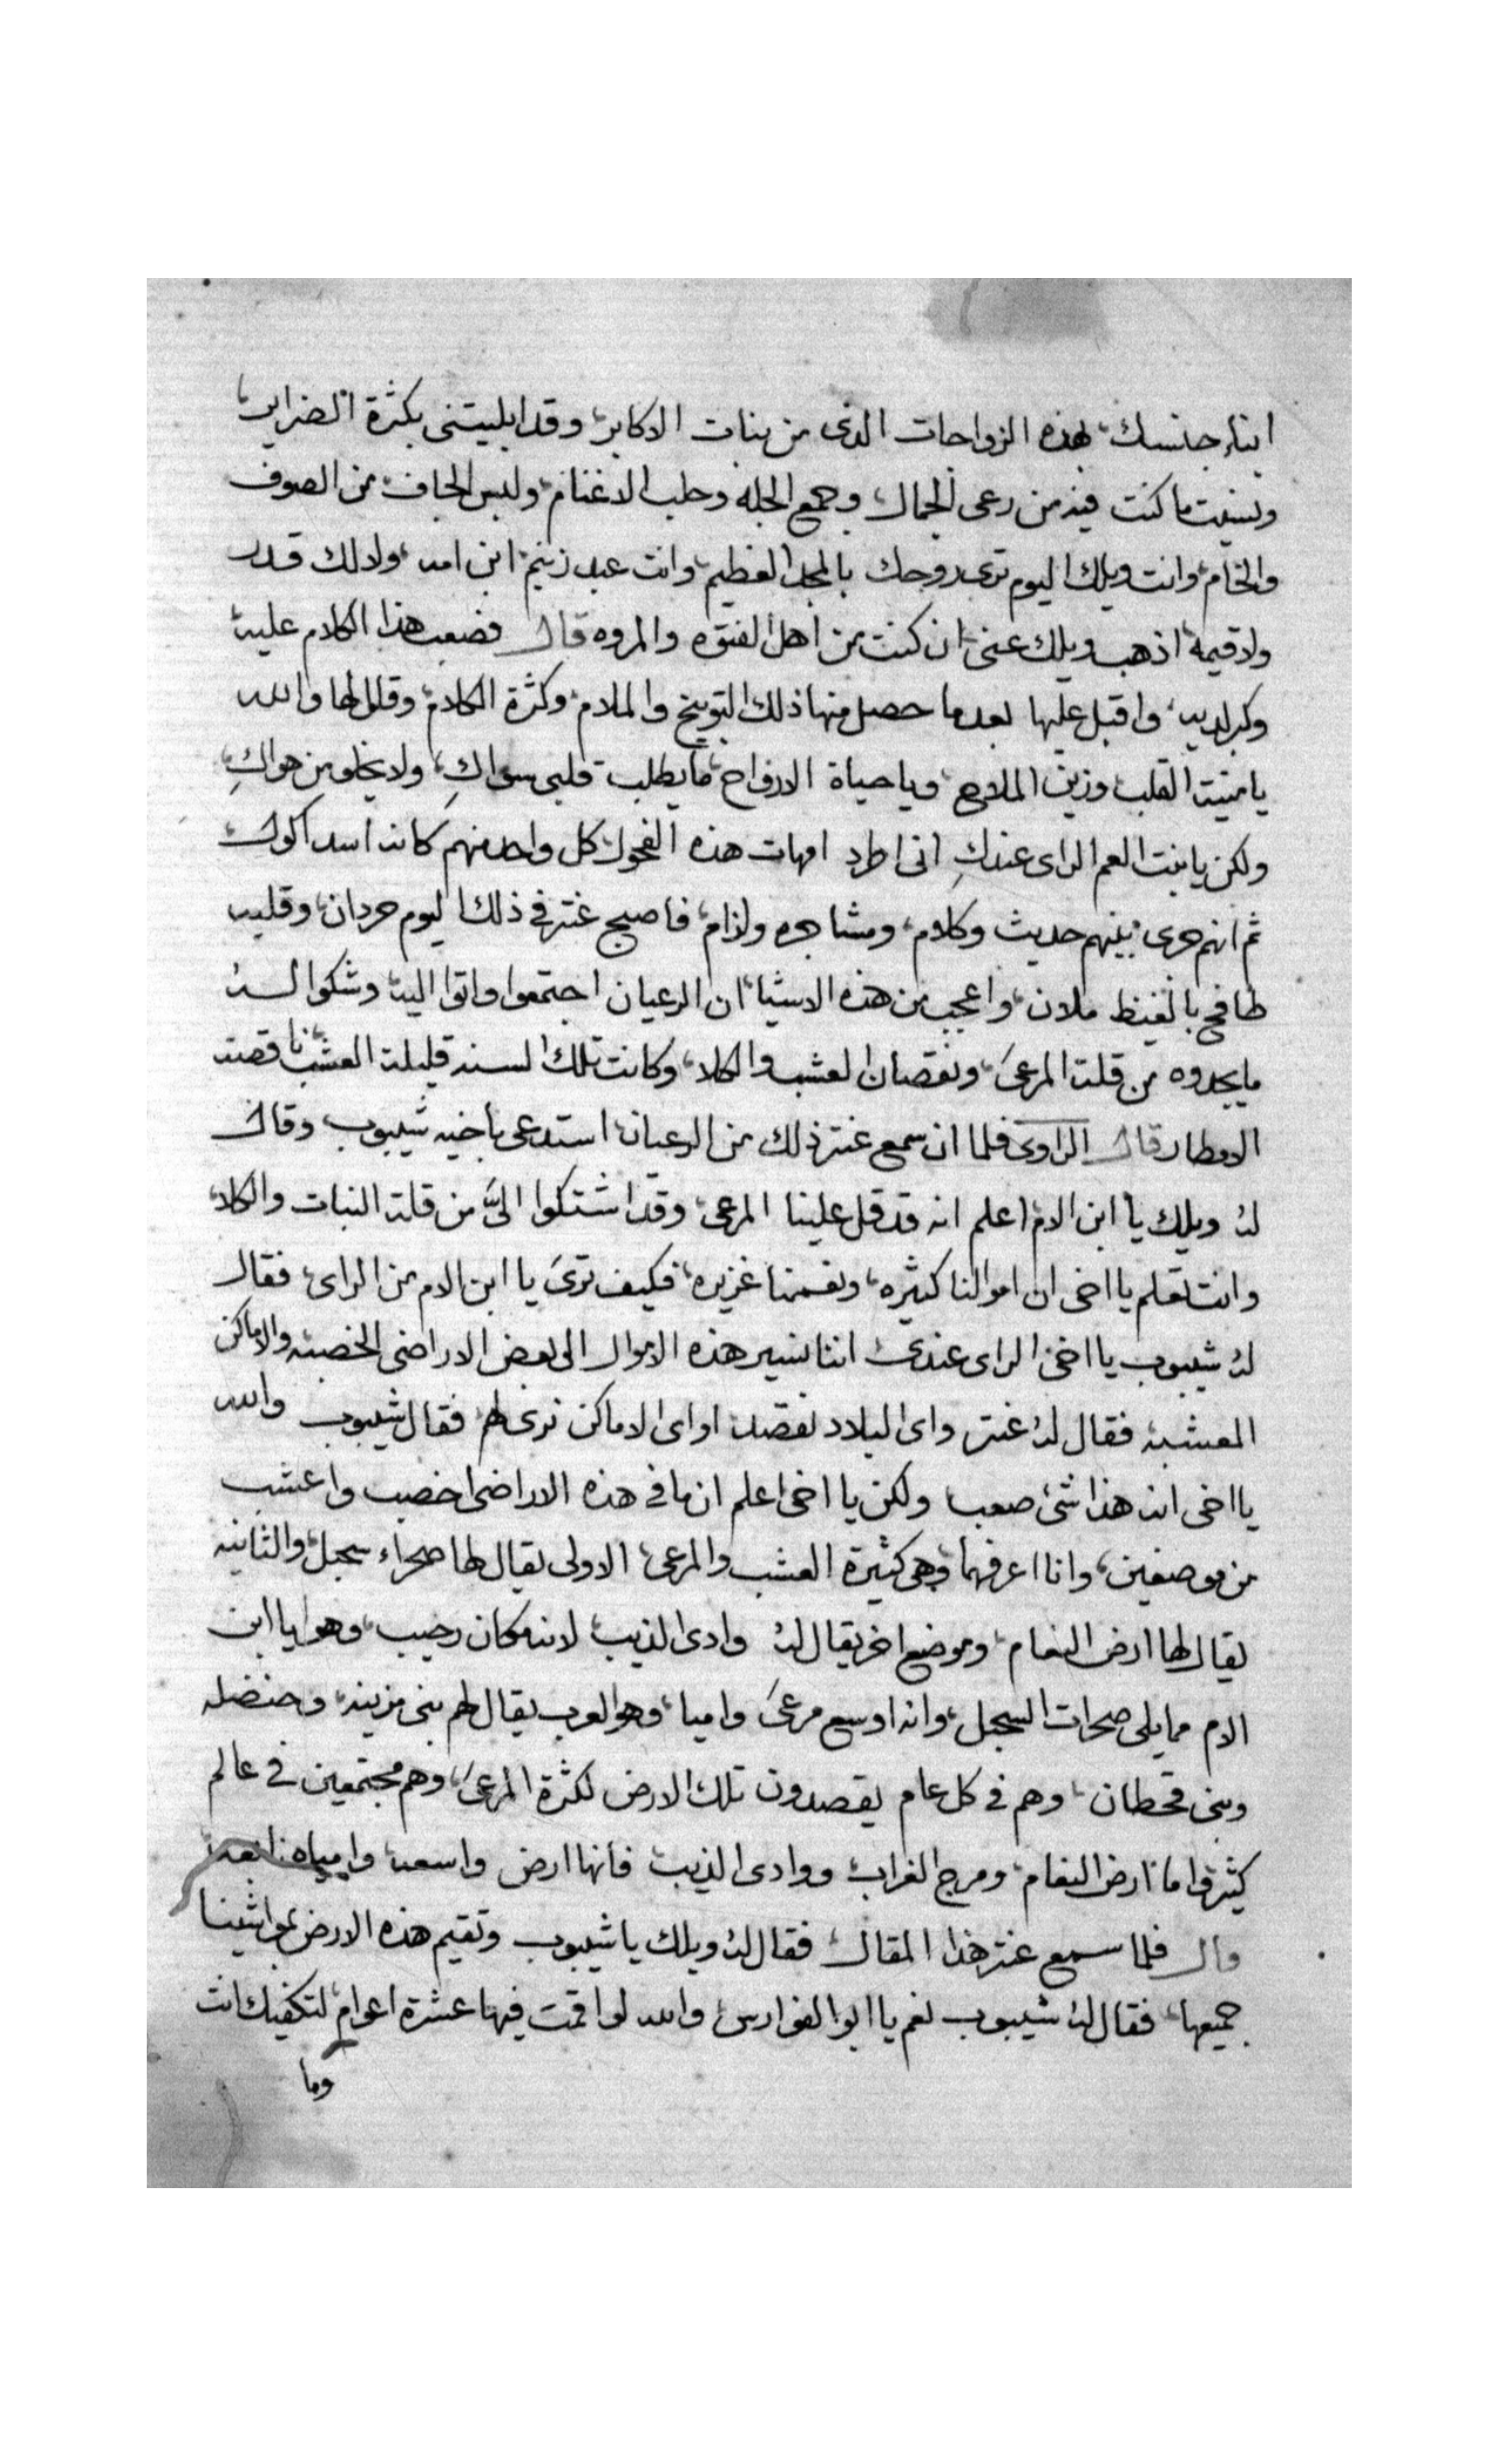 ابناء جنسك، بهذه الزواجات الذى من بنات الاكابر، وقد ابليتنى بكثرة الضراير،
ونسيت ما كنت فيه من رعى الجمال وجمع الجله وحلب الاغنام، ولبس الجاف من الصوف
والخام، وانت ويلك اليوم ترى روحك بالمجد العظيم، وانت عبد زنيم، ابن امه، ولا لك قدر
ولا قيمه، اذهب ويلك عنى، ان كنت من اهل الفتوه والمروه قال فصعب هذا الكلام عليه
وكبر لديه، واقبل عليها بعد ما حصل منها ذلك التوبيخ والملام، وكثرة الكلام، وقال لها والله
يا منيت القلب وزين الملاح، ويا حياة الارواح، ما يطلب قلبى سواكِ، ولا يخلو من هواكِ،
ولكن يا بنت العم الراى عندكِ انى اطرد امهات هذه الفحول، كل واحد منهم كانه اسد اكول
ثم انهم جرى بينهم حديث وكلام، ومشاجره ولزام، فاصبح عنتر فى ذلك اليوم حردان، وقلبه
طافح بالغيظ ملان، واعجب من هذه الاشيا، ان الرعيان اجتمعوا واتوا اليه وشكوا له
ما يجدوه من قلة المرعىَ، ونقصان العشب والكلا، وكانت تلك السنه قليلة العشب، ناقصه
الامطار قال الراوى فلما ان سمع عنتر ذلك من الرعيان، استدعى باخيه شيبوب وقال
له ويلك يا ابن الام اعلم انه قد قل علينا المرعى، وقد اشتكوا الىَّ من قلة النبات والكلا،
وانت تعلم يا اخى ان اموالنا كثيره، ونعمنا غزيره، فكيف ترىَ يا ابن الام من الراى، فقال
له شيبوب يا اخى الراى عندى اننا نسير هذه الاموال الى بعض الاراضى الخصبه والاماكن
المعشبه فقال له عنتر واى البلاد نقصد، او اى الاماكن نرى لهم، فقال شيبوب والله
يا اخى انه هذا شئ صعب ولكن يا اخى اعلم ان ما فى هذه الاراضى اخصب واعشب
من موضعين، وانا اعرفهما وهى كثيرة العشب والمرعى، الاولى يقال لها صحراء سجبل، والثانيه
يقال لها ارض النعام، وموضع اخر يقال له وادى الذيب، لانه مكان رحيب، وهو يا ابن
الام مما يلى صحرات السجبل، وانه اوسع مرعىَ واميا، وهو لعرب يقال لهم بنى مزينه، وحنضله
وبنى قحطان، وهم فى كل عام يقصدون تلك الارض لكثرة المرعىَ، وهم مجتمعين فى عالم
كثير، واما ارض النعام، ومرج الغراب، ووادى الذيب فانها ارض واسعه وامياه نابعه
قال فلما سمع عنتر هذا المقال، فقال له ويلك يا شيبوب وتقيم هذه الارض بمواشينا
جميعها، فقال له شيبوب نعم يا ابو الفوارس، والله لو اقمت فيها عشرة اعوام، لتكفيك انت
وما